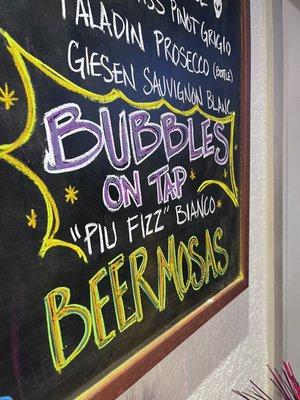 PINOT GRIGIO
PALADIN PROSECCO (BOTTLE)
GIESEN SAUVIGNON BLANC
BUBBLES
ON TAP
"PIU FIZZ" BIANCO
BEERMOSAS